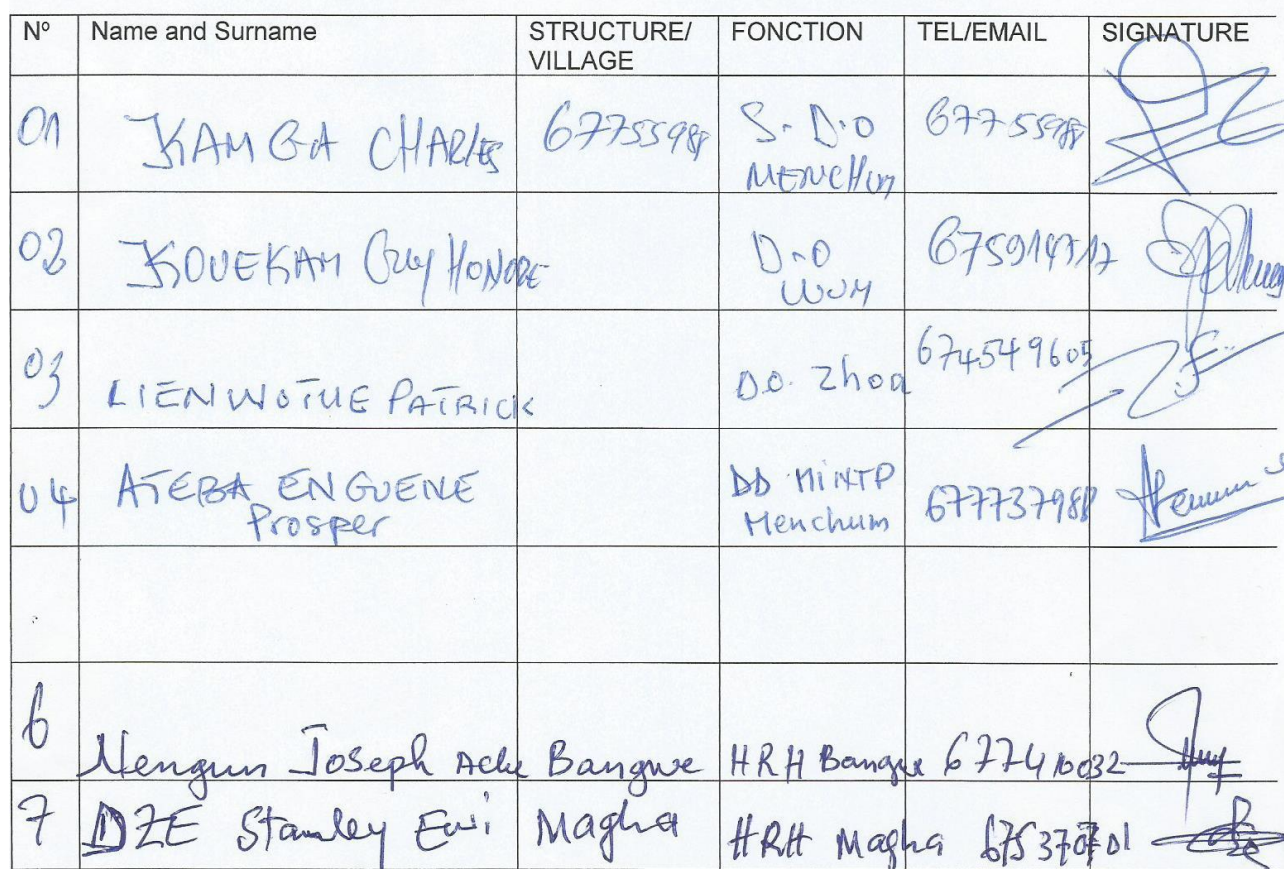 Nº Name and Surname STRUCTURE/ VILLAGE FONCTION TEL/EMAIL SIGNATURE
01 KAMGA CHARLES 67755988 S.D.O MENCHUM 67755988
02 KOUEKAM Guy HONORE D.O WUM 675914717
03 LIENWOTUE PATRICK D.O. Zhoa 674549605
04 ATEBA ENGUENE Prosper DD MINTP Menchum 677737988
6 Nengun Joseph Bangwe HRH Bangwe 677410032
7 DZE Stanley Ewi Magha HRH Magha 675370701